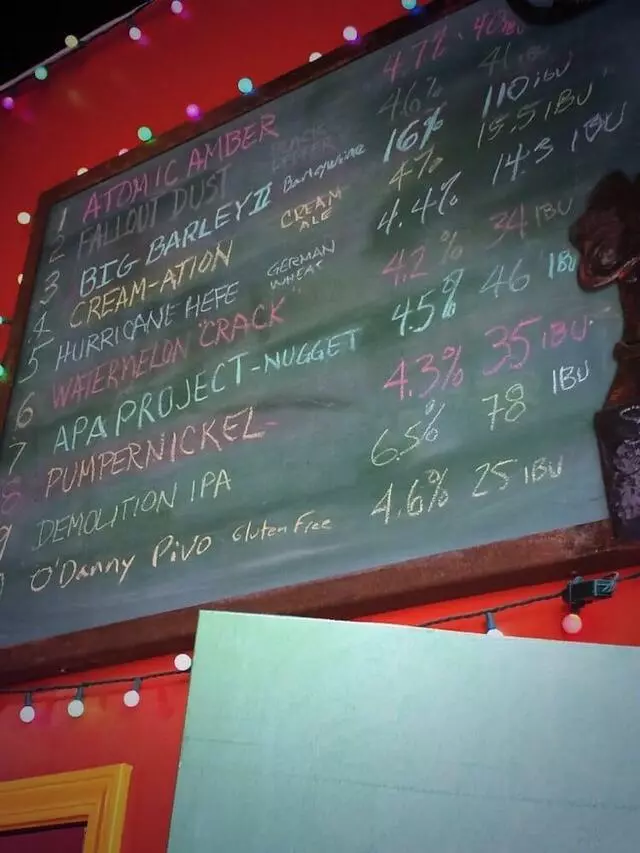 1 ATOMIC AMBER 4.7% 40 IBU
2 FALLOUT DUST 4.6% 41 IBU
3 BIG BARLEY II Barleywine 16% 110 IBU
4 CREAM-ATION CREAM ALE 4% 15.5 IBU
5 HURRICANE HEFE GERMAN WHEAT 4.4% 14.3 IBU
6 WATERMELON CRACK 4.2% 34 IBU
7 APA PROJECT-NUGGET 4.5% 46 IBU
8 PUMPERNICKEL 4.3% 35 IBU
9 DEMOLITION IPA 6.5% 78 IBU
O'Danny Pivo Gluten Free 4.6% 25 IBU